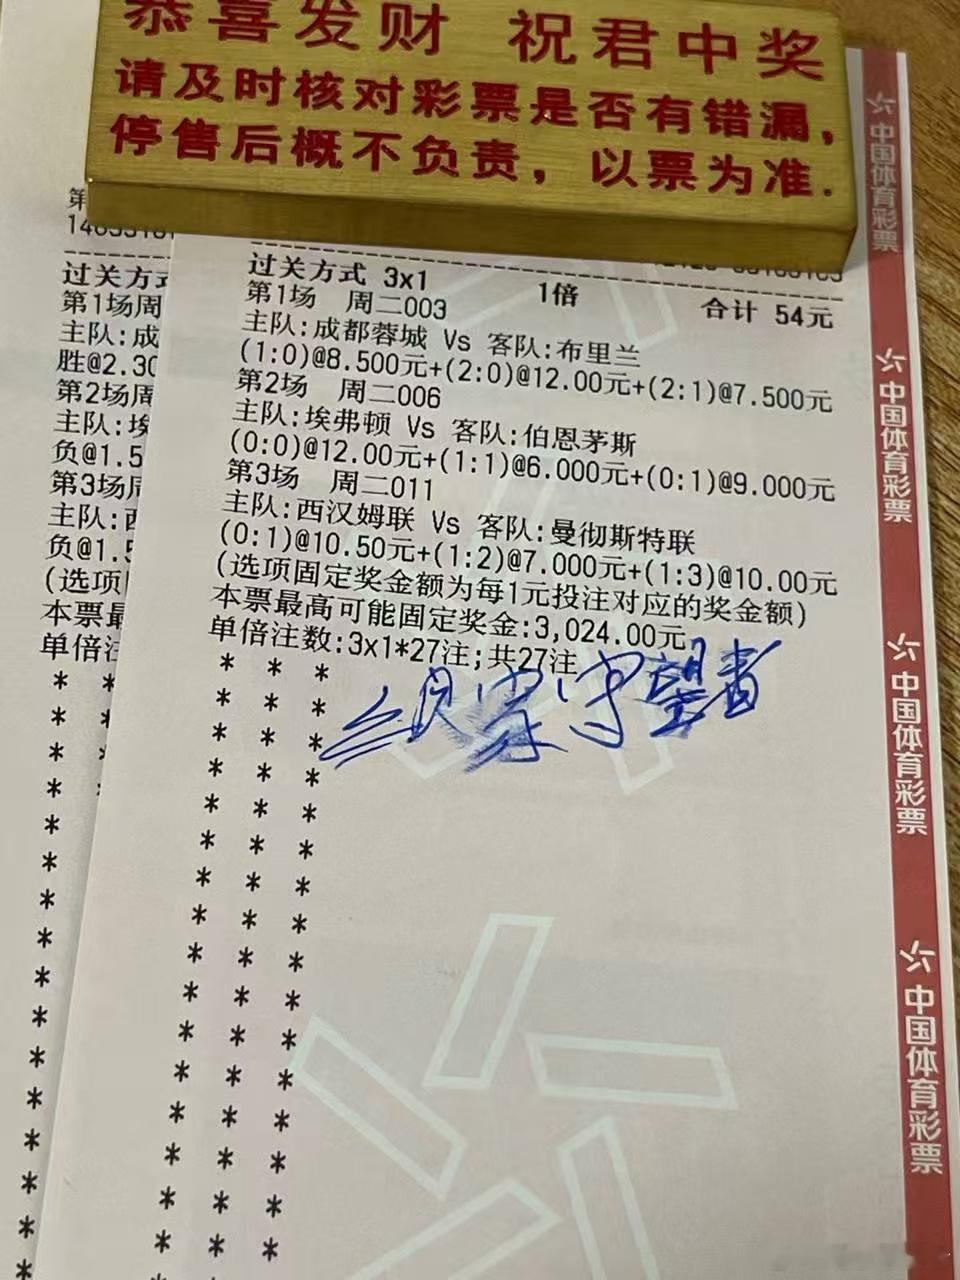 恭喜发财 祝君中奖
请及时核对彩票是否有错漏，
停售后概不负责，以票为准.
第
过关方式 3x1 1倍 合计 54元
第1场 周二003
主队:成都蓉城 Vs 客队:布里兰
(1:0)@8.500元+(2:0)@12.00元+(2:1)@7.500元
第2场 周二006
主队:埃弗顿 Vs 客队:伯恩茅斯
(0:0)@12.00元+(1:1)@6.000元+(0:1)@9.000元
第3场 周二011
主队:西汉姆联 Vs 客队:曼彻斯特联
(0:1)@10.50元+(1:2)@7.000元+(1:3)@10.00元
(选项固定奖金额为每1元投注对应的奖金额)
本票最高可能固定奖金:3,024.00元
单倍注数:3x1*27注;共27注
守望者
过关方式
第1场周
主队:成
胜@2.30
第2场周
主队:埃
负@1.5
第3场周
主队:西
负@1.5
(选项
本票最
单倍注
中国体育彩票
中国体育彩票
中国体育彩票
中国体育彩票